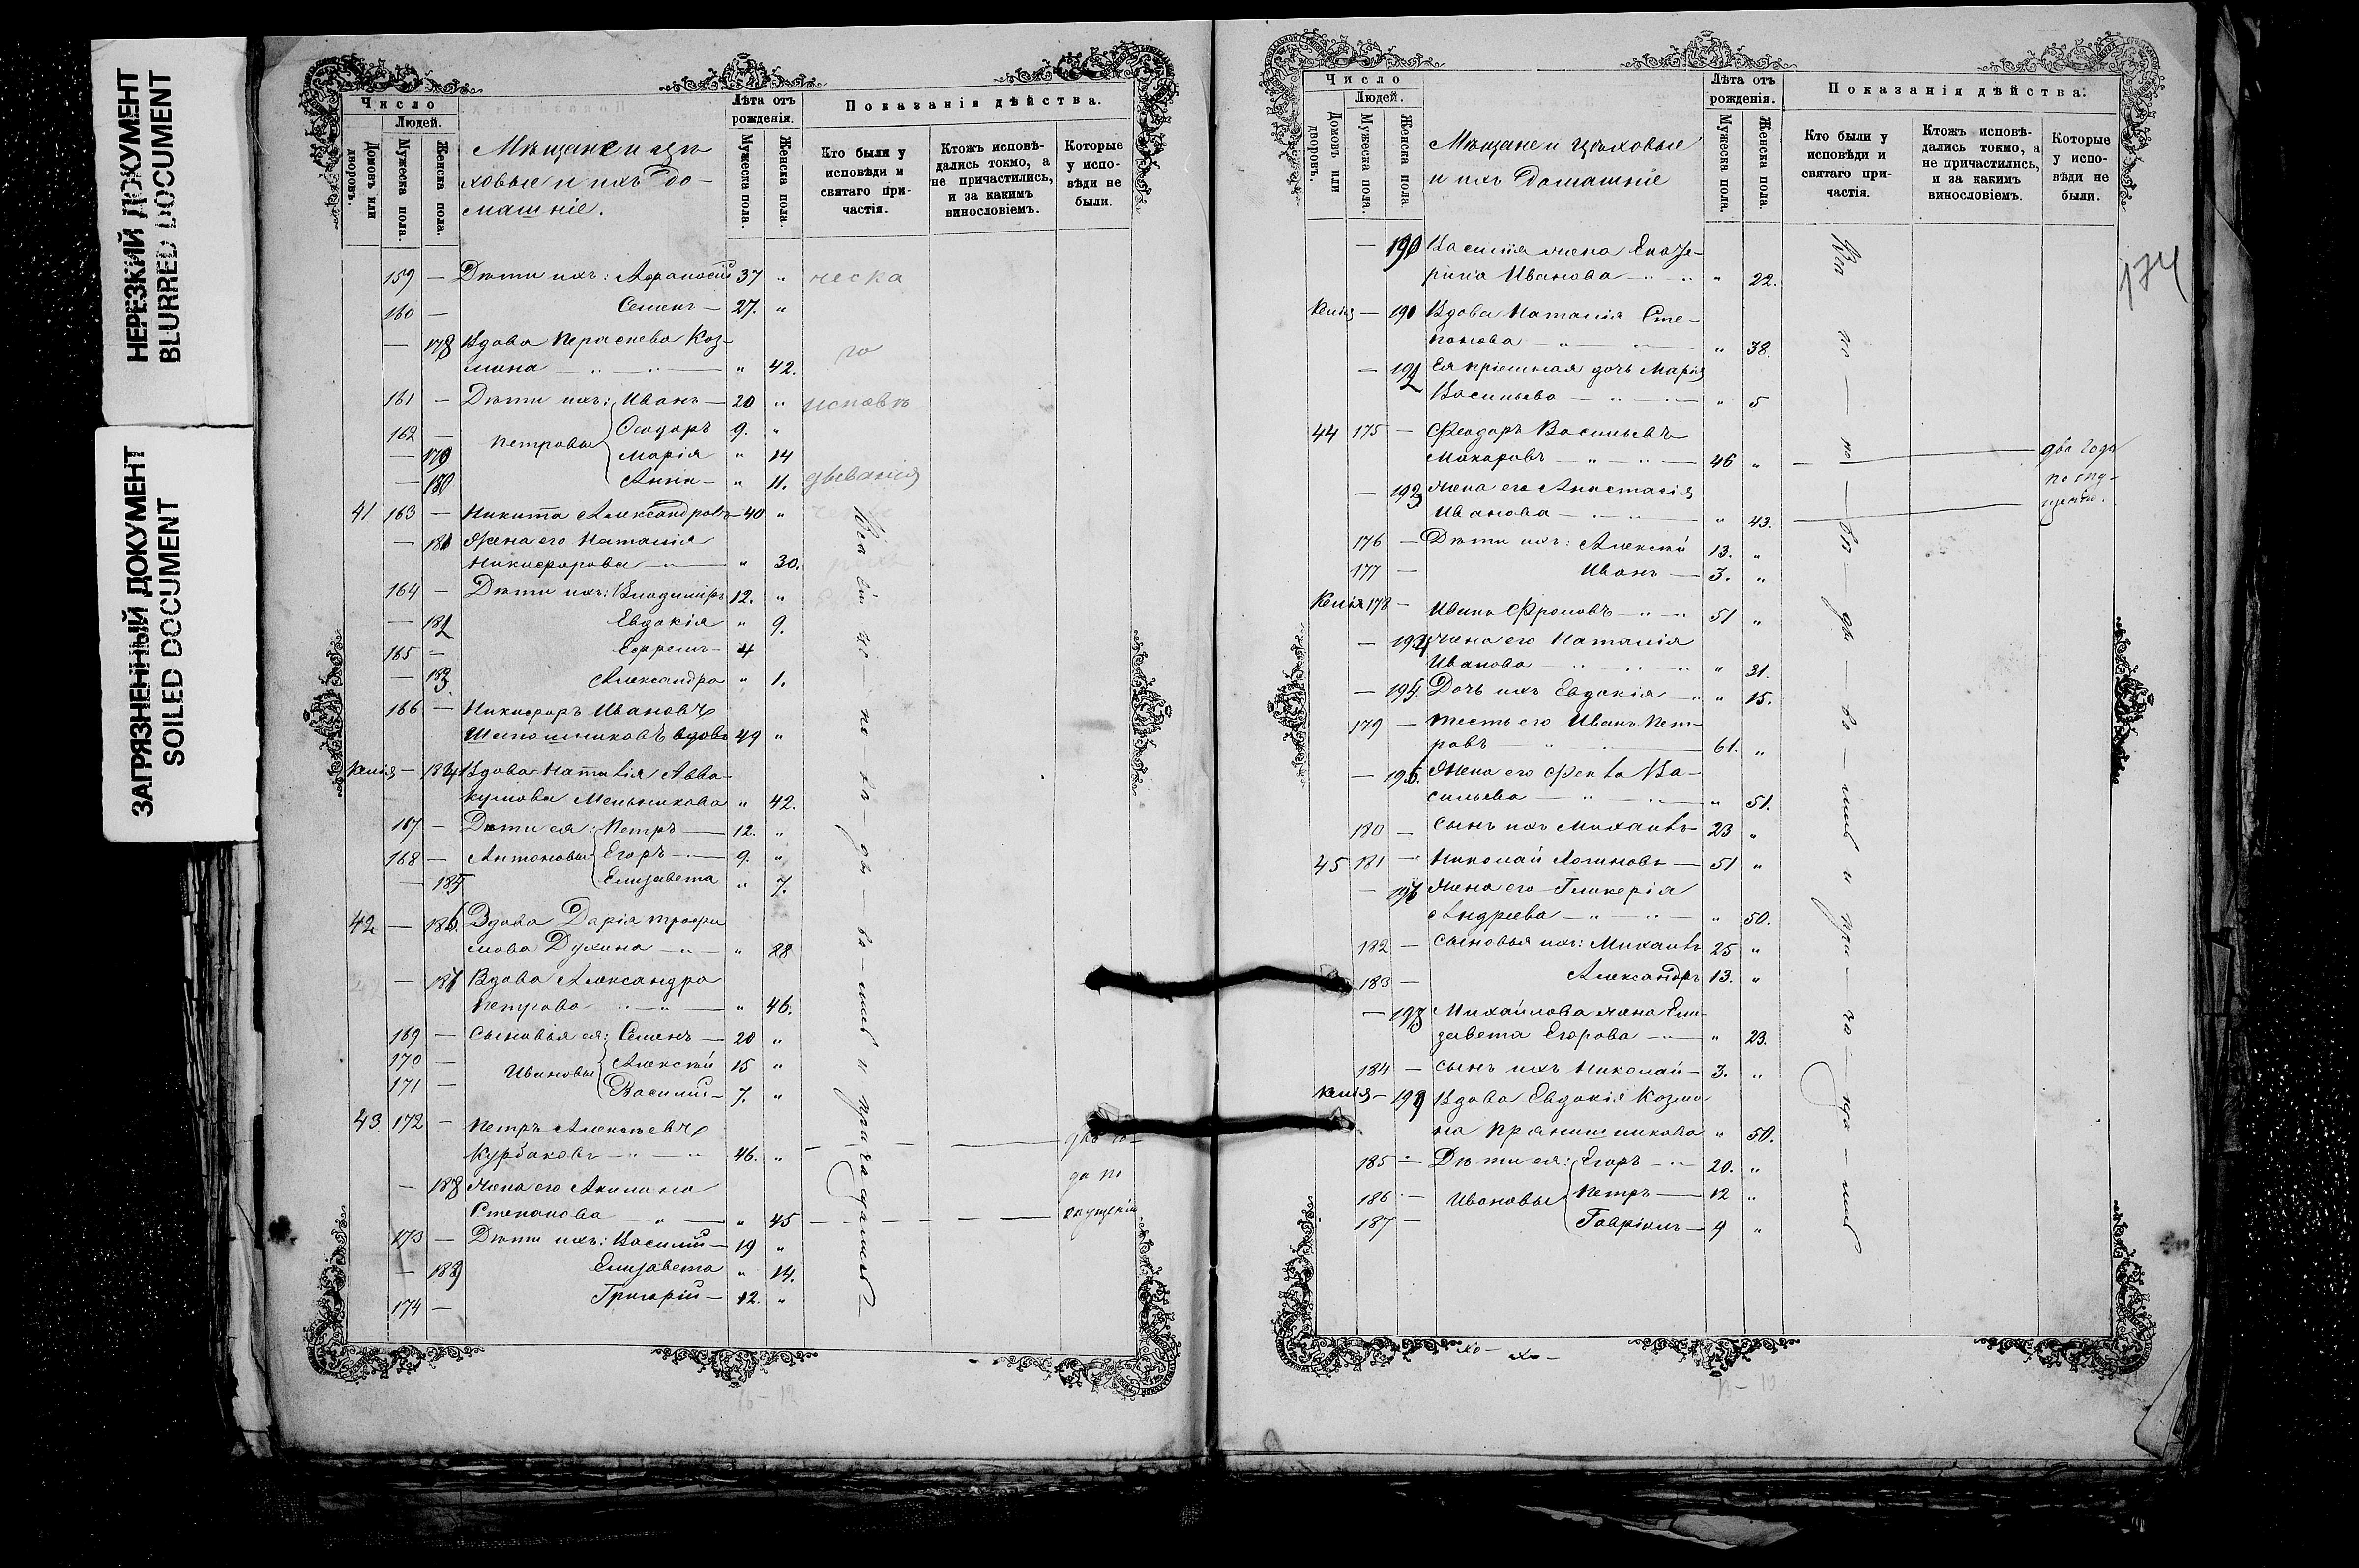 НЕРЕЗКИЙ ДОКУМЕНТ
BLURRED DOCUMENT
ЗАГРЯЗНЕННЫЙ ДОКУМЕНТ
SOILED DOCUMENT
Число
Людей.
Домовъ или дворовъ.
Мужеска пола.
Женска пола.
Мѣщане и цѣ-
ховые и ихъ до-
машніе.
Лѣта отъ рожденія.
Мужеска пола.
Женска пола.
Показанія дѣйства.
Кто были у исповѣди и святаго при- частія.
Ктожъ исповѣ- дались токмо, а не причастились, и за какимъ винословіемъ.
Которые у испо- вѣди не были.
159 — Дѣти ихъ: Афанасій 37 „
160 — Семенъ — 27. „
— 178 Вдова Параскева Коз-
мина — „ 42.
161 — Дѣти ихъ: Иванъ — 20 „
162 — Петровы Ѳеодоръ 9. „
— 179 Марія „ 14
— 180 Анна — „ 11.
41 163 — Никита Александровъ — 40 „
— 181 Жена его Наталія
Никифорова — „ 30.
164 — Дѣти ихъ: Владиміръ 12. „
— 182 Евдокія „ 9.
165 — Ефремъ — 4
— 183 Александра „ 1.
166 — Никифоръ Ивановъ
Шапошниковъ вдовъ 49 „
Келія — 184 Вдова Наталія Авва-
кумова Меньшикова „ 42.
167 — Дѣти ея: Петръ — 12. „
168 — Антоновы Егоръ — 9. „
— 185 Елизавета „ 7.
42 — 186. Вдова Дарія Трофи
мова Духина — „ 88
— 187 Вдова Александра
Петрова — „ 46.
169 — Сыновья ея: Семенъ — 20 „
170 — Ивановы Алексѣй 15 „
171 — Василій — 7. „
43. 172 — Петръ Алексѣевъ
Курбаковъ — 46. „ два го-
— 188 Жена его Акилина да по
Степанова — „ 45 опущенію
173 — Дѣти ихъ: Василій — 19 „
— 189 Елизавета „ 14.
174 — Григорій — 12. „
Число
Людей.
Домовъ или дворовъ.
Мужеска пола.
Женска пола.
Мѣщане и цѣховые
и ихъ домашніе
Лѣта отъ рожденія.
Мужеска пола.
Женска пола.
Показанія дѣйства.
Кто были у исповѣди и святаго при- частія.
Ктожъ исповѣ- дались токмо, а не причастились, и за какимъ винословіемъ.
Которые у испо- вѣди не были.
174
— 190 Василія жена Екате-
рина Иванова — „ 22.
Келія — 191 Вдова Наталія Сте-
панова — „ 38.
— 192 Ея пріемная дочь Марія
Васильева — „ 5
44 175 — Феодоръ Васильевъ
Макаровъ — 46 „ два года
— 193 Жена его Анастасія по опу-
Иванова — „ 43. щенію.
176 — Дѣти ихъ: Алексѣй 13. „
177 — Иванъ — 3. „
Келія 178 — Иванъ Фроловъ — 51 „
— 194 Жена его Наталія
Иванова — „ 31.
— 195. Дочь ихъ Евдокія — „ 15.
179 — Тесть его Иванъ Пет-
ровъ — 61. „
— 196. Жена его Фекла Ва-
сильева — „ 51.
180 — Сынъ ихъ Михаилъ 23 „
45 181 — Николай Логиновъ — 51 „
— 197 Жена его Гликерія
Андреева — „ 50.
182 — Сыновья ихъ: Михаилъ 25 „
183 — Александръ 13. „
— 198 Михайлова жена Ели-
завета Егорова — „ 23.
184 — Сынъ ихъ Николай — 3. „
Келія — 199 Вдова Евдокія Козми
на Прянишникова „ 50.
185 — Дѣти ея: Егоръ — 20. „
186 — Ивановы Петръ — 12 „
187 — Гавріилъ — 9 „